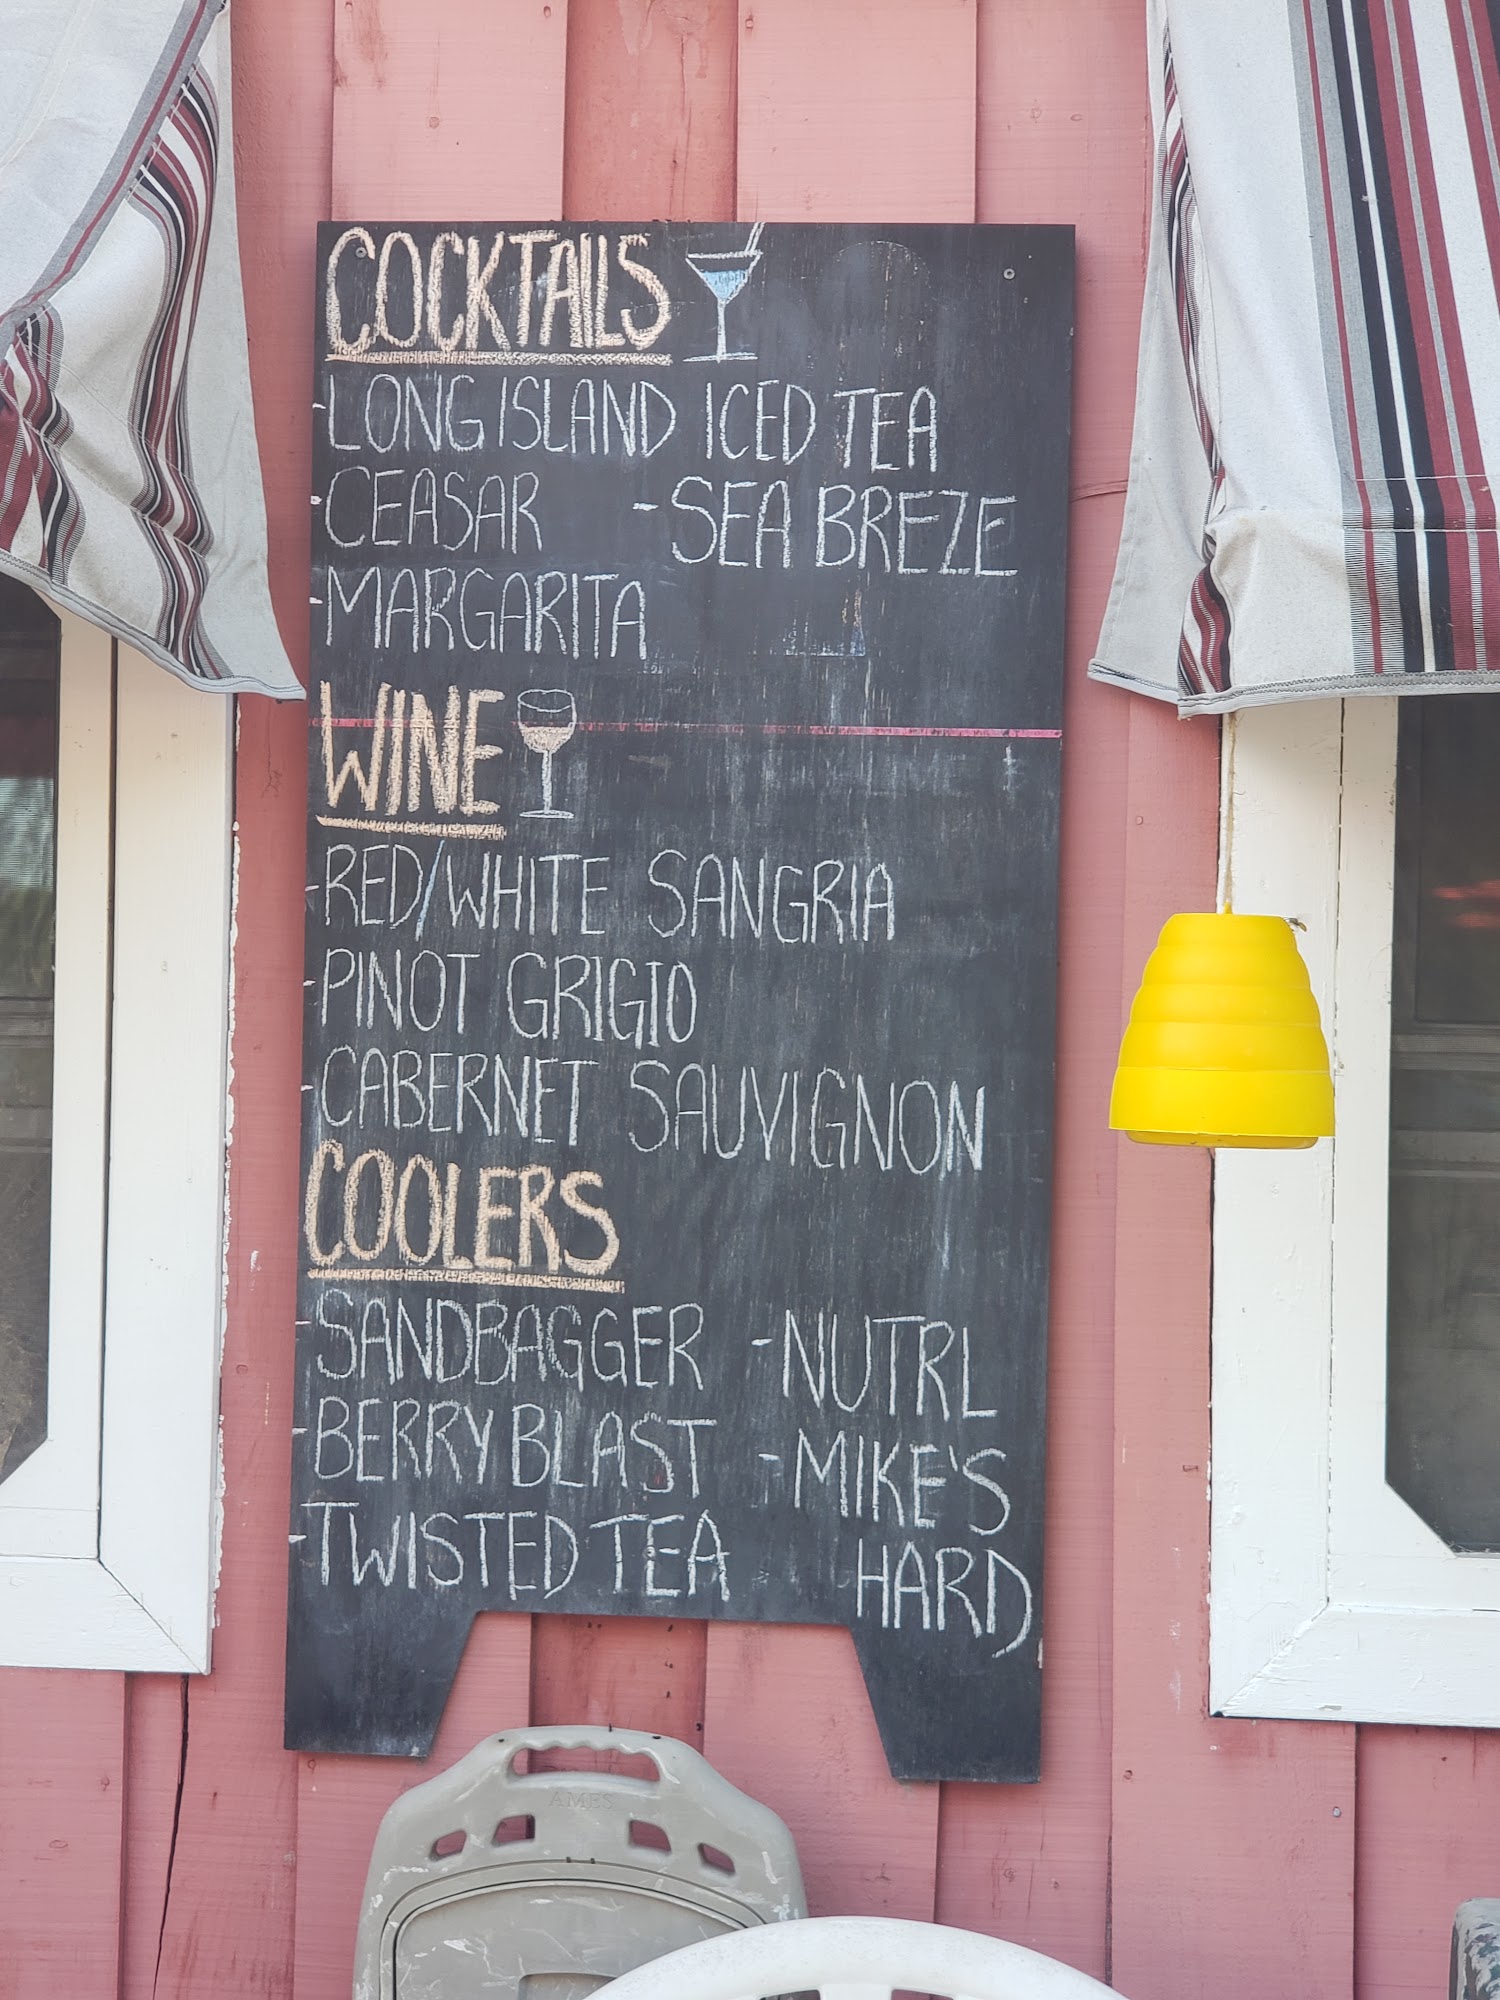 COCKTAILS
-LONG ISLAND ICED TEA
-CEASAR -SEA BREZE
-MARGARITA
WINE
-RED/WHITE SANGRIA
-PINOT GRIGIO
-CABERNET SAUVIGNON
COOLERS
-SANDBAGGER -NUTRL
-BERRY BLAST -MIKE'S
-TWISTED TEA HARD
AMES